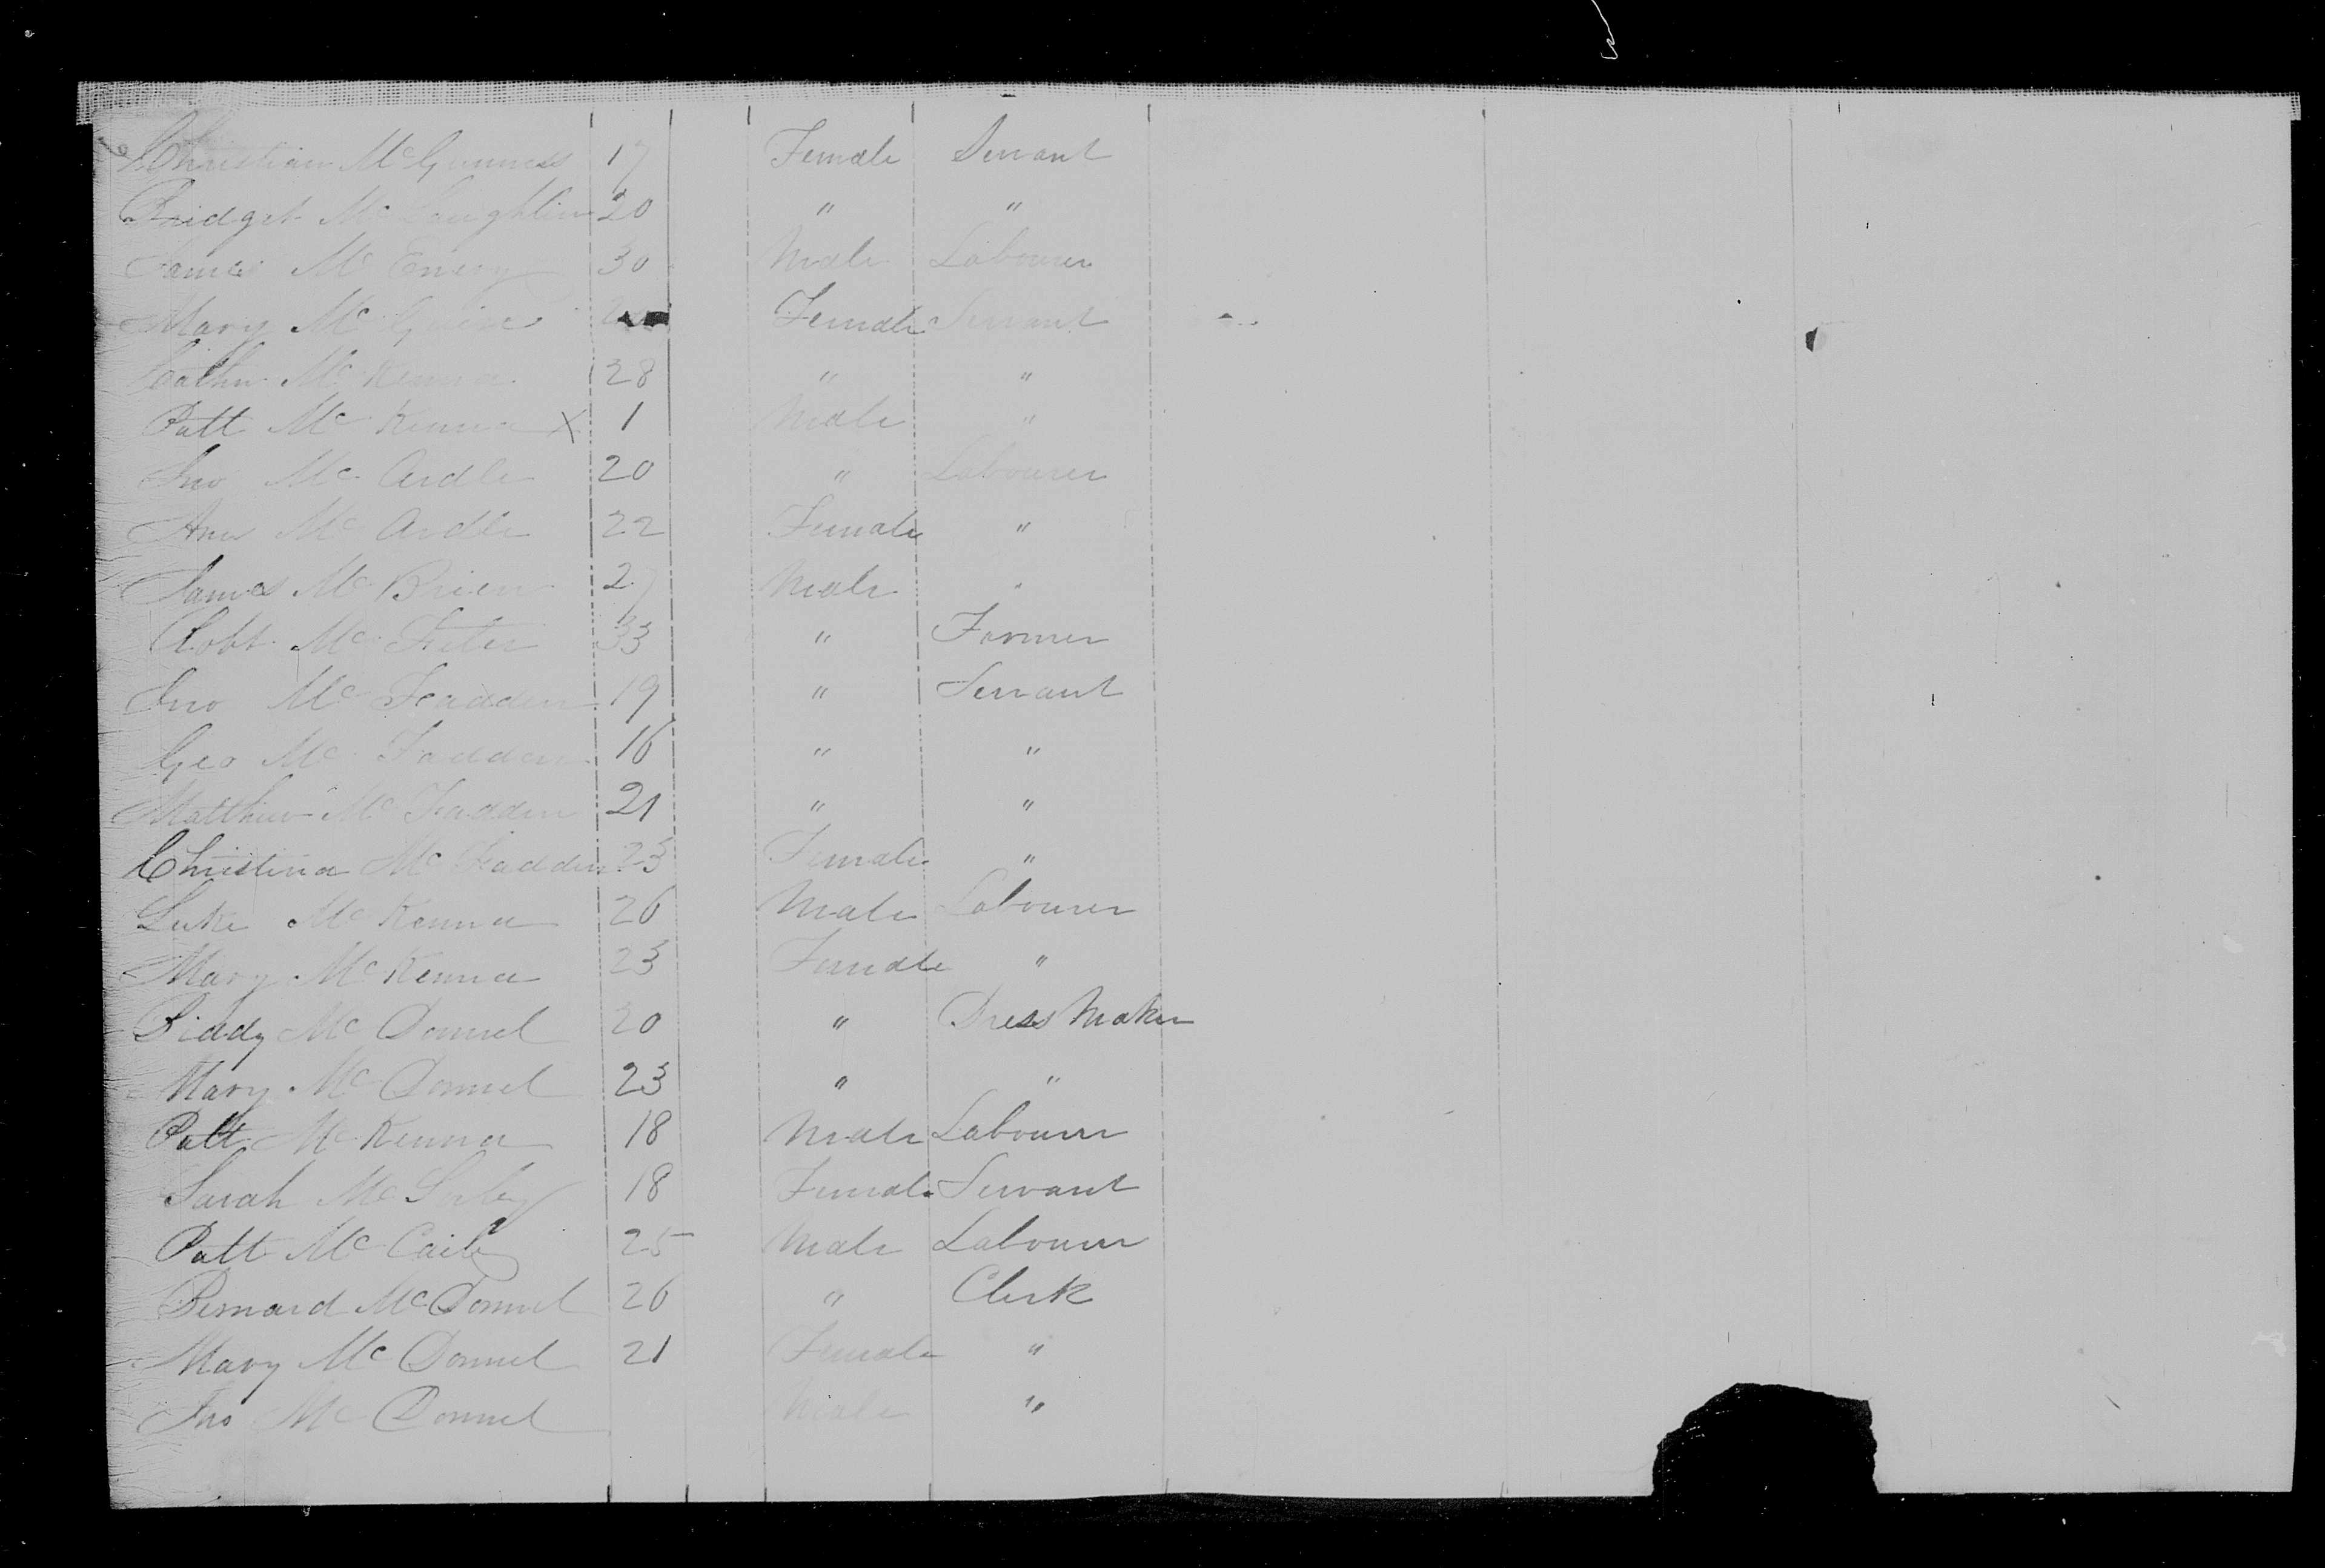 Christian McGunness 17 Female Servant
Bridget McLaughlin 20 " "
James McEnery 30 Male Labourer
Mary McGuire Female Servant
Cathn McKenna 28 " "
Patt McKenna X 1 Male "
Jno McArdle 20 " Labourer
Ann McArdle 22 Female "
James McBrien 27 Male "
Robt 33 " Farmer
Jno McFadden 19 " Servant
Geo McFadden 16 " "
Matthew McFadden 21 " "
Christina McFadden 23 Female "
Luke McKenna 26 Male Labourer
Mary McKenna 23 Female "
Biddy McDonnel 20 " Dress Maker
Mary McDonnel 23 " "
Patt McKenna 18 Male Labourer
Sarah McSorley 18 Female Servant
Patt 25 Male Labourer
Bernard McDonnel 26 " Clerk
Mary McDonnel 21 Female "
Jno McDonnel Male "